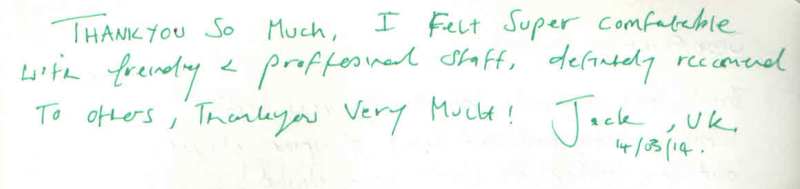 THANKYOU So Much, I Felt Super comfatable
with freindly & proffesional staff, definitely reccomend
To others, Thankyou Very Much! Jack, UK.
14/03/14.